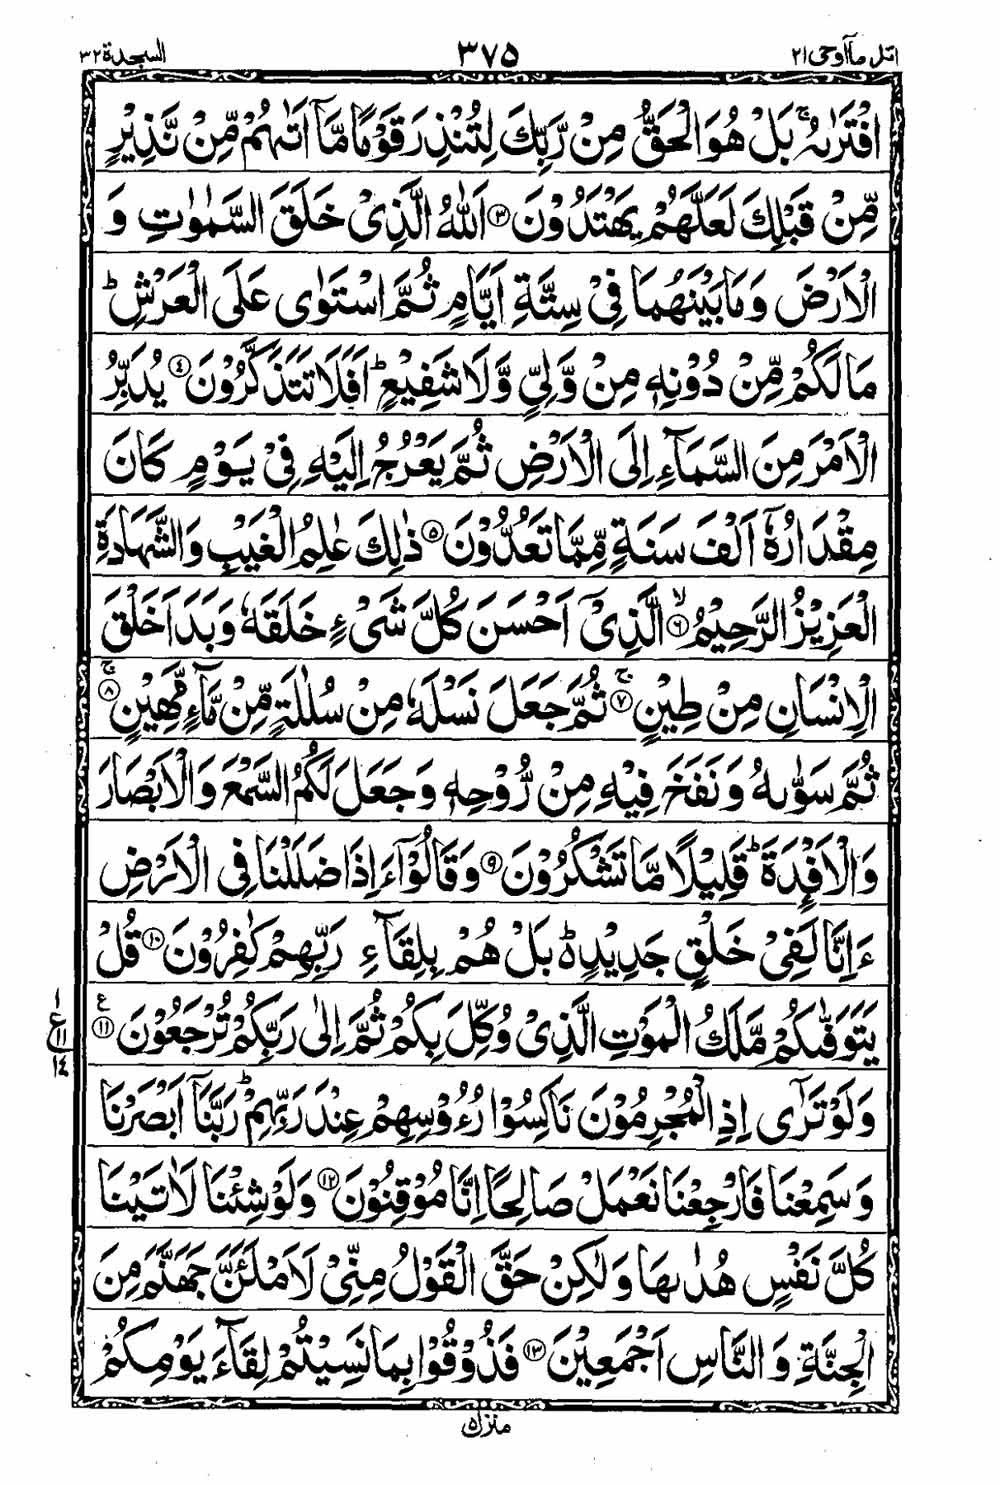 اتل مآاوحی ۲۱
۳۷۵
السجدة ۳۲
افْتَرٰىهُ ۚ بَلْ هُوَ الْحَقُّ مِنْ رَّبِّكَ لِتُنْذِرَ قَوْمًا مَّاۤ اَتٰىهُمْ مِّنْ نَّذِيْرٍ
مِّنْ قَبْلِكَ لَعَلَّهُمْ يَهْتَدُوْنَ ۝۳ اَللّٰهُ الَّذِیْ خَلَقَ السَّمٰوٰتِ وَ
الْاَرْضَ وَمَا بَيْنَهُمَا فِیْ سِتَّةِ اَيَّامٍ ثُمَّ اسْتَوٰی عَلَی الْعَرْشِ ؕ
مَا لَكُمْ مِّنْ دُوْنِهٖ مِنْ وَّلِیٍّ وَّلَا شَفِيْعٍ ؕ اَفَلَا تَتَذَكَّرُوْنَ ۝۴ يُدَبِّرُ
الْاَمْرَ مِنَ السَّمَآءِ اِلَی الْاَرْضِ ثُمَّ يَعْرُجُ اِلَيْهِ فِیْ يَوْمٍ كَانَ
مِقْدَارُهٗۤ اَلْفَ سَنَةٍ مِّمَّا تَعُدُّوْنَ ۝۵ ذٰلِكَ عٰلِمُ الْغَيْبِ وَالشَّهَادَةِ
الْعَزِيْزُ الرَّحِيْمُ ۝۶ۙ الَّذِیْۤ اَحْسَنَ كُلَّ شَیْءٍ خَلَقَهٗ وَبَدَاَ خَلْقَ
الْاِنْسَانِ مِنْ طِيْنٍ ۝۷ۚ ثُمَّ جَعَلَ نَسْلَهٗ مِنْ سُلٰلَةٍ مِّنْ مَّآءٍ مَّهِيْنٍ ۝۸ۚ
ثُمَّ سَوّٰىهُ وَنَفَخَ فِيْهِ مِنْ رُّوْحِهٖ وَجَعَلَ لَكُمُ السَّمْعَ وَالْاَبْصَارَ
وَالْاَفْـِٕدَةَ ؕ قَلِيْلًا مَّا تَشْكُرُوْنَ ۝۹ وَقَالُوْۤا ءَاِذَا ضَلَلْنَا فِی الْاَرْضِ
ءَاِنَّا لَفِیْ خَلْقٍ جَدِيْدٍ ؕ۬ بَلْ هُمْ بِلِقَآئِ رَبِّهِمْ كٰفِرُوْنَ ۝۱۰ قُلْ
يَتَوَفّٰىكُمْ مَّلَكُ الْمَوْتِ الَّذِیْ وُكِّلَ بِكُمْ ثُمَّ اِلٰی رَبِّكُمْ تُرْجَعُوْنَ ۝۱۱ ع
۱
ع ۱۱
۱۴
وَلَوْ تَرٰۤی اِذِ الْمُجْرِمُوْنَ نَاكِسُوْا رُءُوْسِهِمْ عِنْدَ رَبِّهِمْ ؕ رَبَّنَاۤ اَبْصَرْنَا
وَسَمِعْنَا فَارْجِعْنَا نَعْمَلْ صَالِحًا اِنَّا مُوْقِنُوْنَ ۝۱۲ وَلَوْ شِئْنَا لَاٰتَيْنَا
كُلَّ نَفْسٍ هُدٰىهَا وَلٰكِنْ حَقَّ الْقَوْلُ مِنِّیْ لَاَمْلَئَنَّ جَهَنَّمَ مِنَ
الْجِنَّةِ وَالنَّاسِ اَجْمَعِيْنَ ۝۱۳ فَذُوْقُوْا بِمَا نَسِيْتُمْ لِقَآءَ يَوْمِكُمْ
منزل ۵